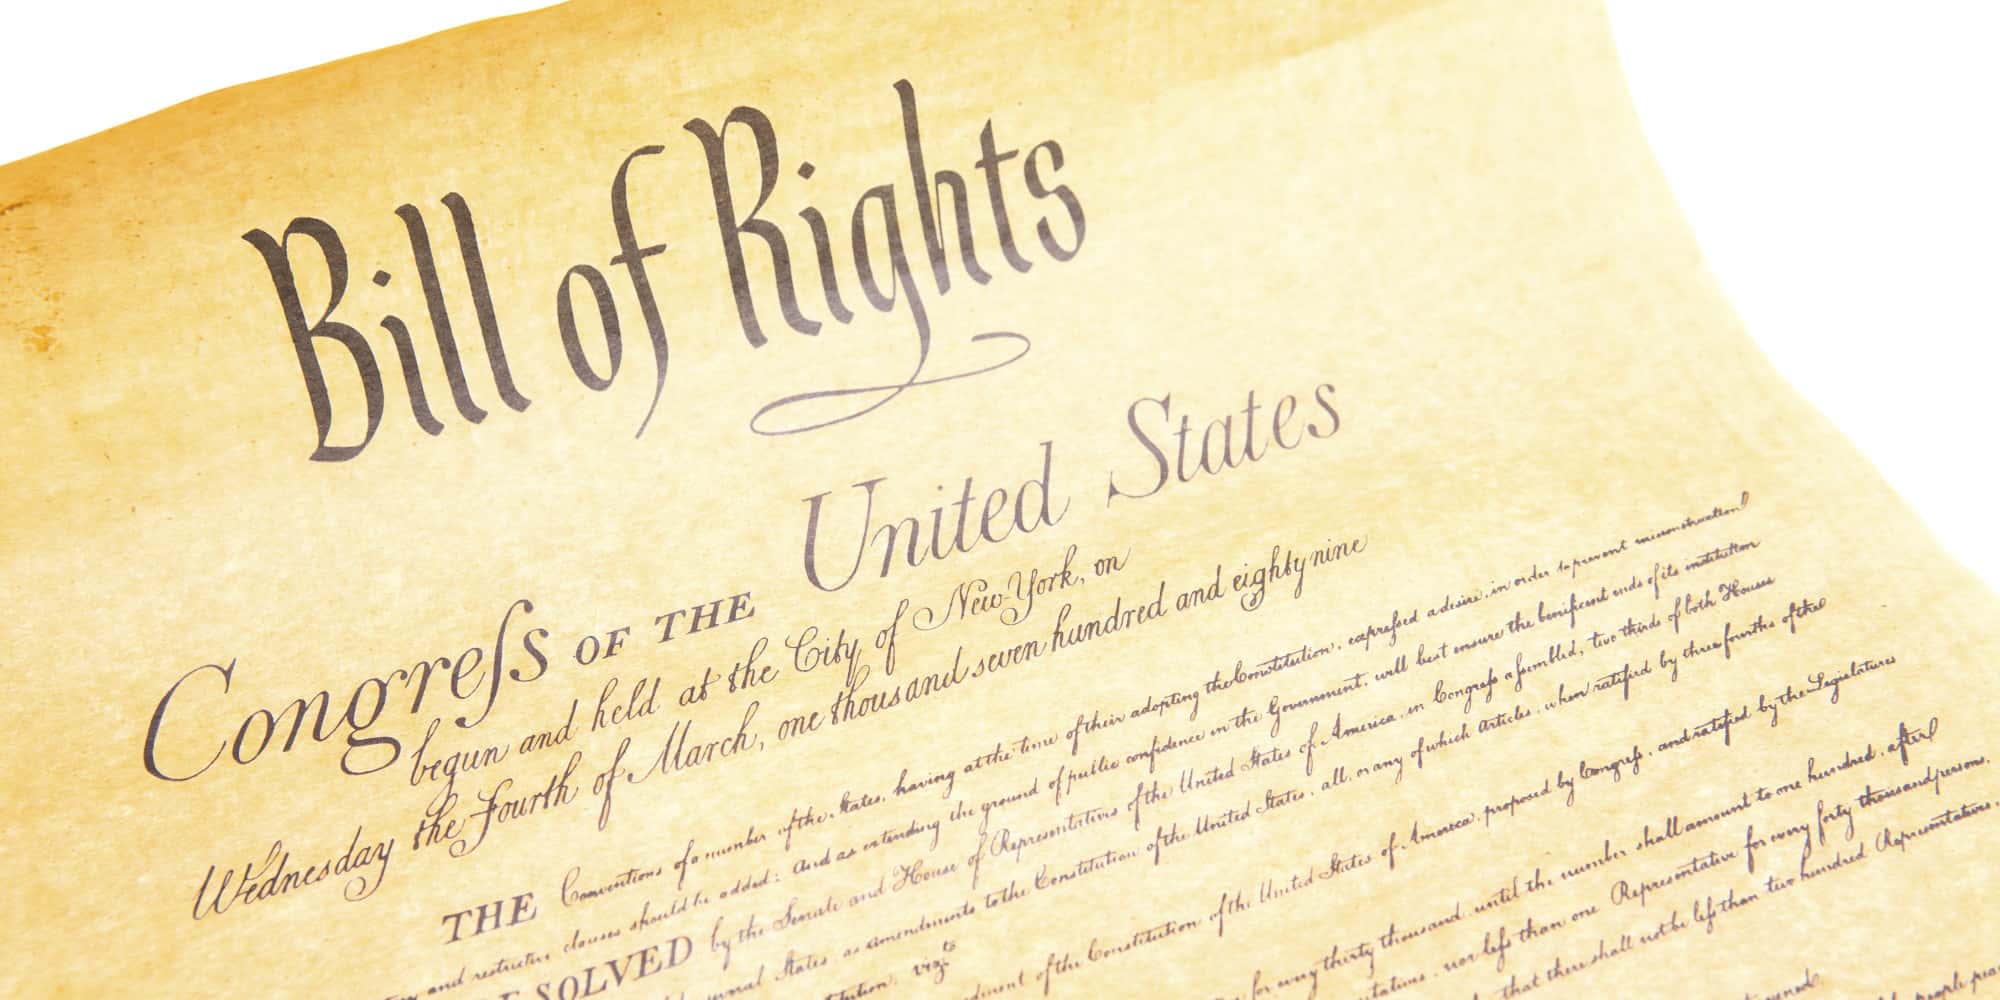 Bill of Rights
Congreſs OF THE United States
begun and held at the City of New-York, on
Wednesday the Fourth of March, one thousand seven hundred and eighty nine
THE Conventions of a number of the States, having at the time of their adopting the Constitution, expreſsed a desire, in order to prevent misconstruction
and restrictive clauses should be added: And as extending the ground of public confidence in the Government, will best ensure the beneficent ends of its institution
SOLVED by the Senate and House of Representatives of the United States of America, in Congreſs aſsembled, two thirds of both Houses
States as amendments to the Constitution of the United States, all, or any of which Articles, when ratified by three fourths of the
vizt
of the Constitution of the United States of America, proposed by Congreſs, and ratified by the Legislatures
for every thirty thousand, until the number shall amount to one hundred, after
nor leſs than one Representative for every forty thousand persons,
that there shall not be leſs than two hundred Representatives,
people